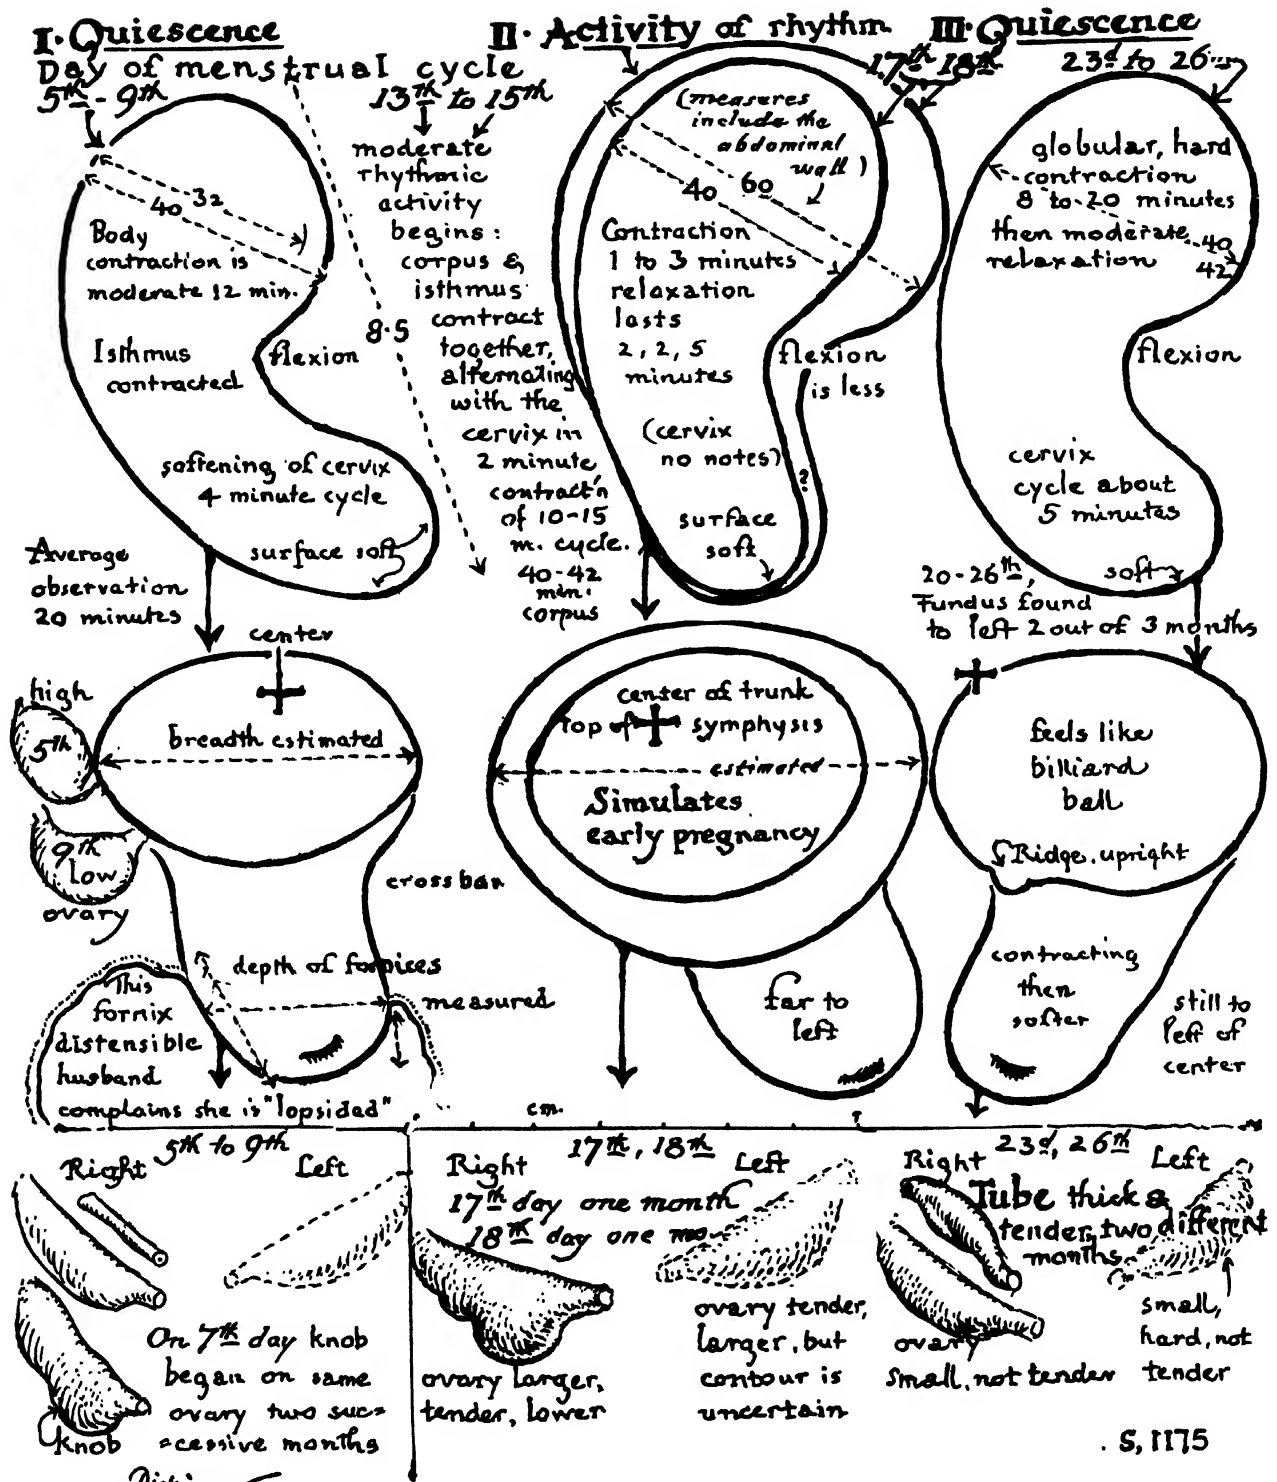 I. Quiescence
Day of menstrual cycle
5th - 9th
32
40
Body
contraction is
moderate 12 min.
Isthmus
contracted
flexion
softening of cervix
4 minute cycle
surface soft
8.5
Average
observation
20 minutes
13th to 15th
moderate
rhythmic
activity
begins:
corpus &
isthmus
contract
together,
alternating
with the
cervix in
2 minute
contract'n
of 10-15
m. cycle.
40-42
min.
corpus
II. Activity of rhythm
17th 18th
(measures
include the
abdominal
wall)
40 60
Contraction
1 to 3 minutes
relaxation
lasts
2, 2, 5
minutes
flexion
is less
(cervix
no notes)
?
surface
soft
III. Quiescence
23d to 26
globular, hard
contraction
8 to 20 minutes
then moderate
relaxation
40
42
flexion
cervix
cycle about
5 minutes
soft
20-26th,
Fundus found
to left 2 out of 3 months
center
high
5th
breadth estimated
9th
low
ovary
crossbar
depth of fornices
measured
This
fornix
distensible
husband
complains she is "lopsided"
center of trunk
Top of symphysis
estimated
Simulates
early pregnancy
far to
left
feels like
billiard
ball
Ridge, upright
contracting
then
softer
still to
left of
center
cm.
5th to 9th
Right Left
On 7th day knob
began on same
ovary two suc=
=cessive months
knob
17th, 18th
Right Left
17th day one month
18th day one mo-
ovary larger,
tender, lower
ovary tender,
larger, but
contour is
uncertain
23d, 26th
Right Left
Tube thick &
tender, two different
months
ovary
small, not tender
small,
hard, not
tender
S, 1175